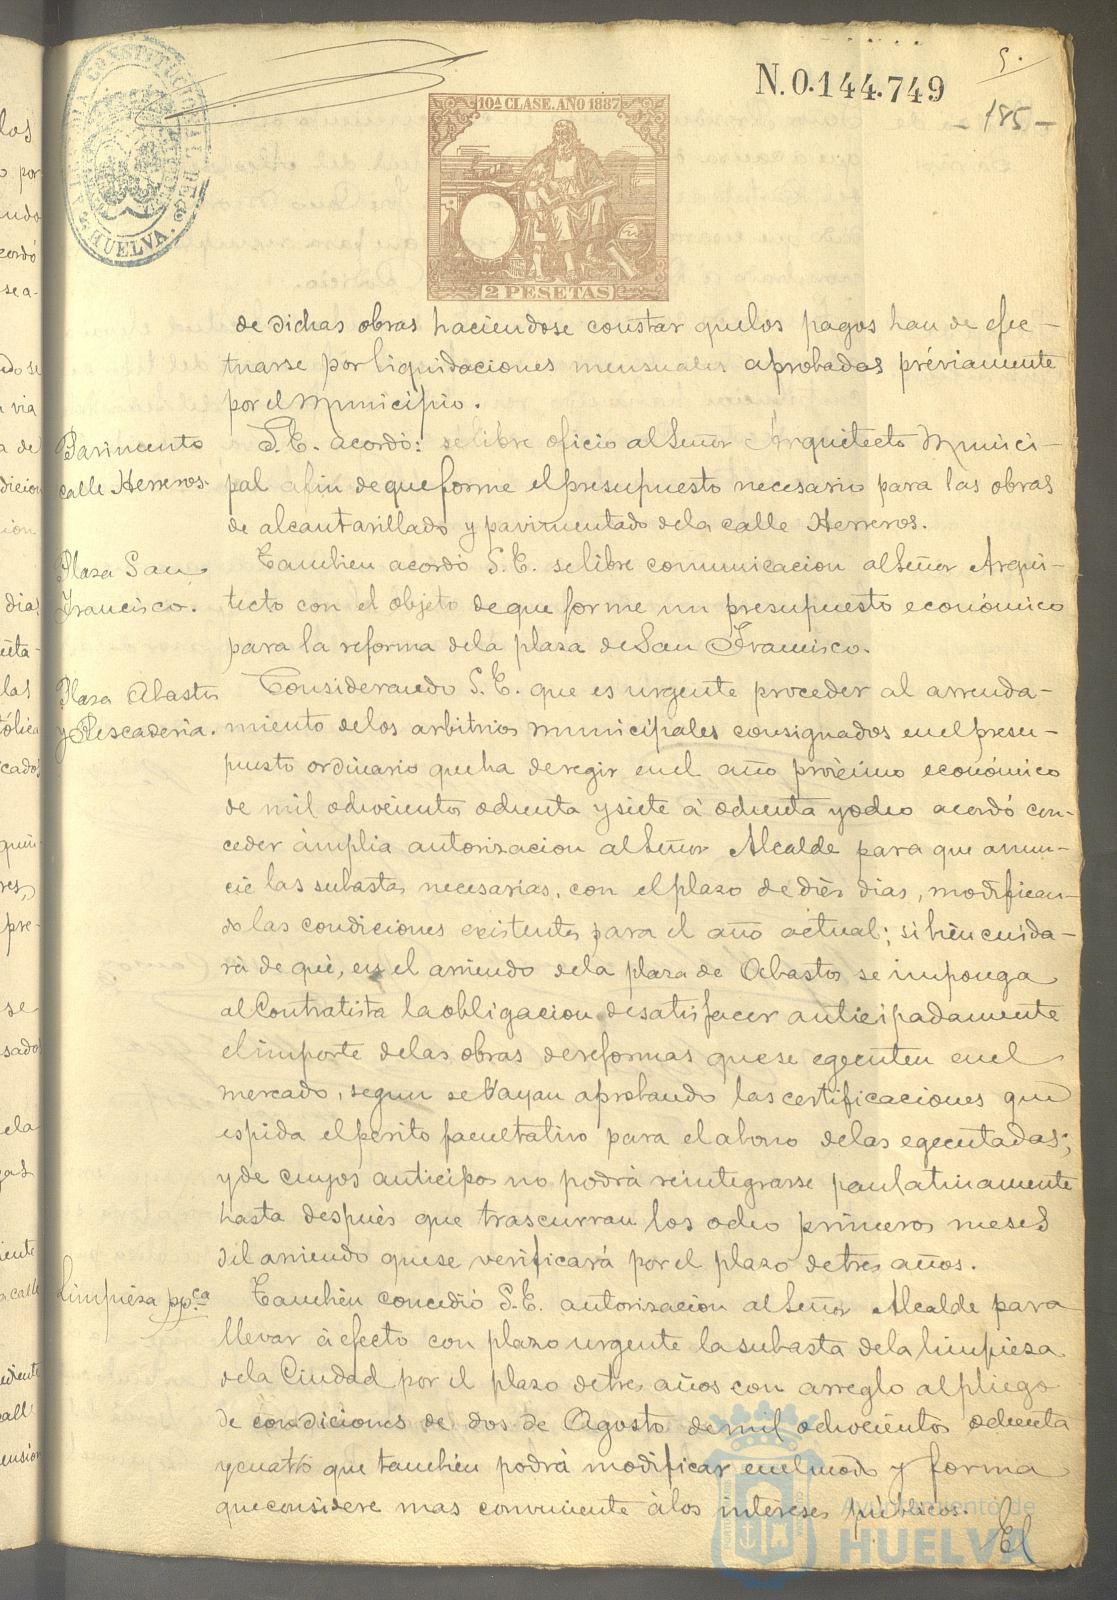 N.0.144.749
5.
- 185 -
10ª CLASE. AÑO 1887
2 PESETAS
HUELVA.
de dichas obras haciendose constar que los pagos han de efec-
tuarse por liquidaciones mensuales aprobadas préviamente
por el Municipio.
Pavimento
calle Herreros.
S.E. acordó: se libre oficio al Señor Arquitecto Munici-
pal a fin de que forme el presupuesto necesario para las obras
de alcantarillado y pavimentado de la calle Herreros.
Plaza San
Francisco.
Tambien acordó S.E. se libre comunicacion al Señor Arqui-
tecto con el objeto de que forme un presupuesto económico
para la reforma de la plaza de San Francisco.
Plaza Abastos
y Pescaderia.
Considerando S.E. que es urgente proceder al arrenda-
miento de los arbitrios municipales consignados en el presu-
puesto ordinario que ha de regir en el año próximo económico
de mil ochocientos ochenta y siete á ochenta y ocho acordó con-
ceder ámplia autorizacion al Señor Alcalde para que anun-
cie las subastas necesarias, con el plazo de diés dias, modifican-
do las condiciones existentes para el año actual; si bien cuida-
rá de què, en el arriendo de la plaza de Abastos se imponga
al Contratista la obligacion de satisfacer anticipadamente
el importe de las obras de reformas que se egecuten en el
mercado, segun se vayan aprobando las certificaciones que
espida el perito facultativo para el abono de las egecutadas;
y de cuyos anticipos no podrá reintegrarse paulatinamente
hasta despues que trascurran los ocho primeros meses
del arriendo que se verificará por el plazo de tres años.
Limpieza ppca
Tambien concedió S.E. autorizacion al Señor Alcalde para
llevar á efecto con plazo urgente la subasta de la limpieza
de la Ciudad por el plazo de tres años con arreglo al pliego
de condiciones de dos de Agosto de mil ochocientos ochenta
y cuatro que tambien podrá modificar en el modo y forma
que considere mas conveniente á los intereses públicos. El
Ayuntamiento de
HUELVA